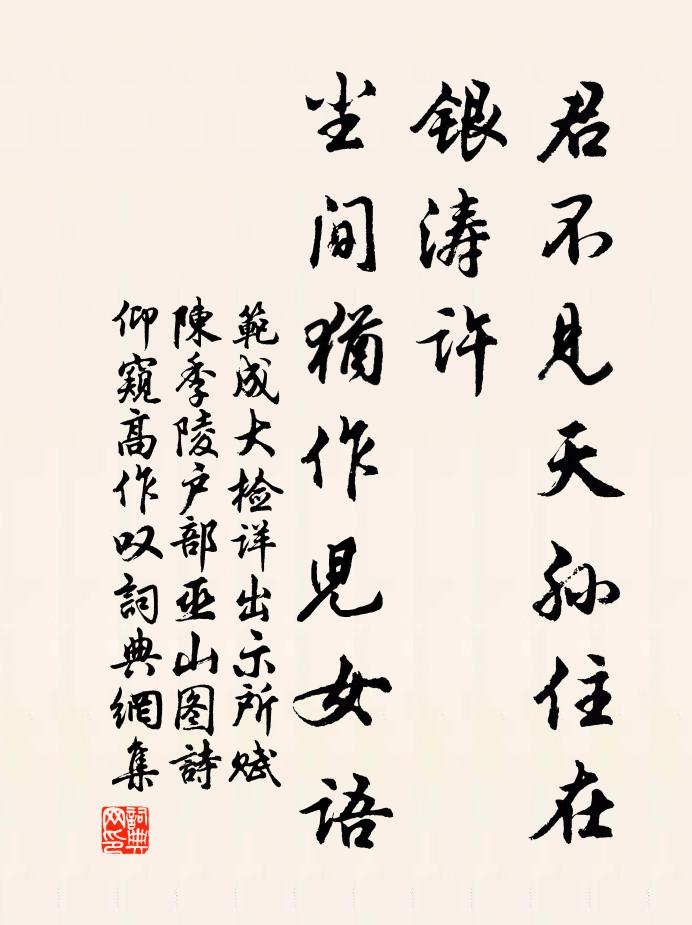 君不見天孙住在
銀涛许
尘间猶作兒女语
範成大检详出示所赋
陳季陵户部巫山图詩
仰窺高作叹詞典網集
詞典网印